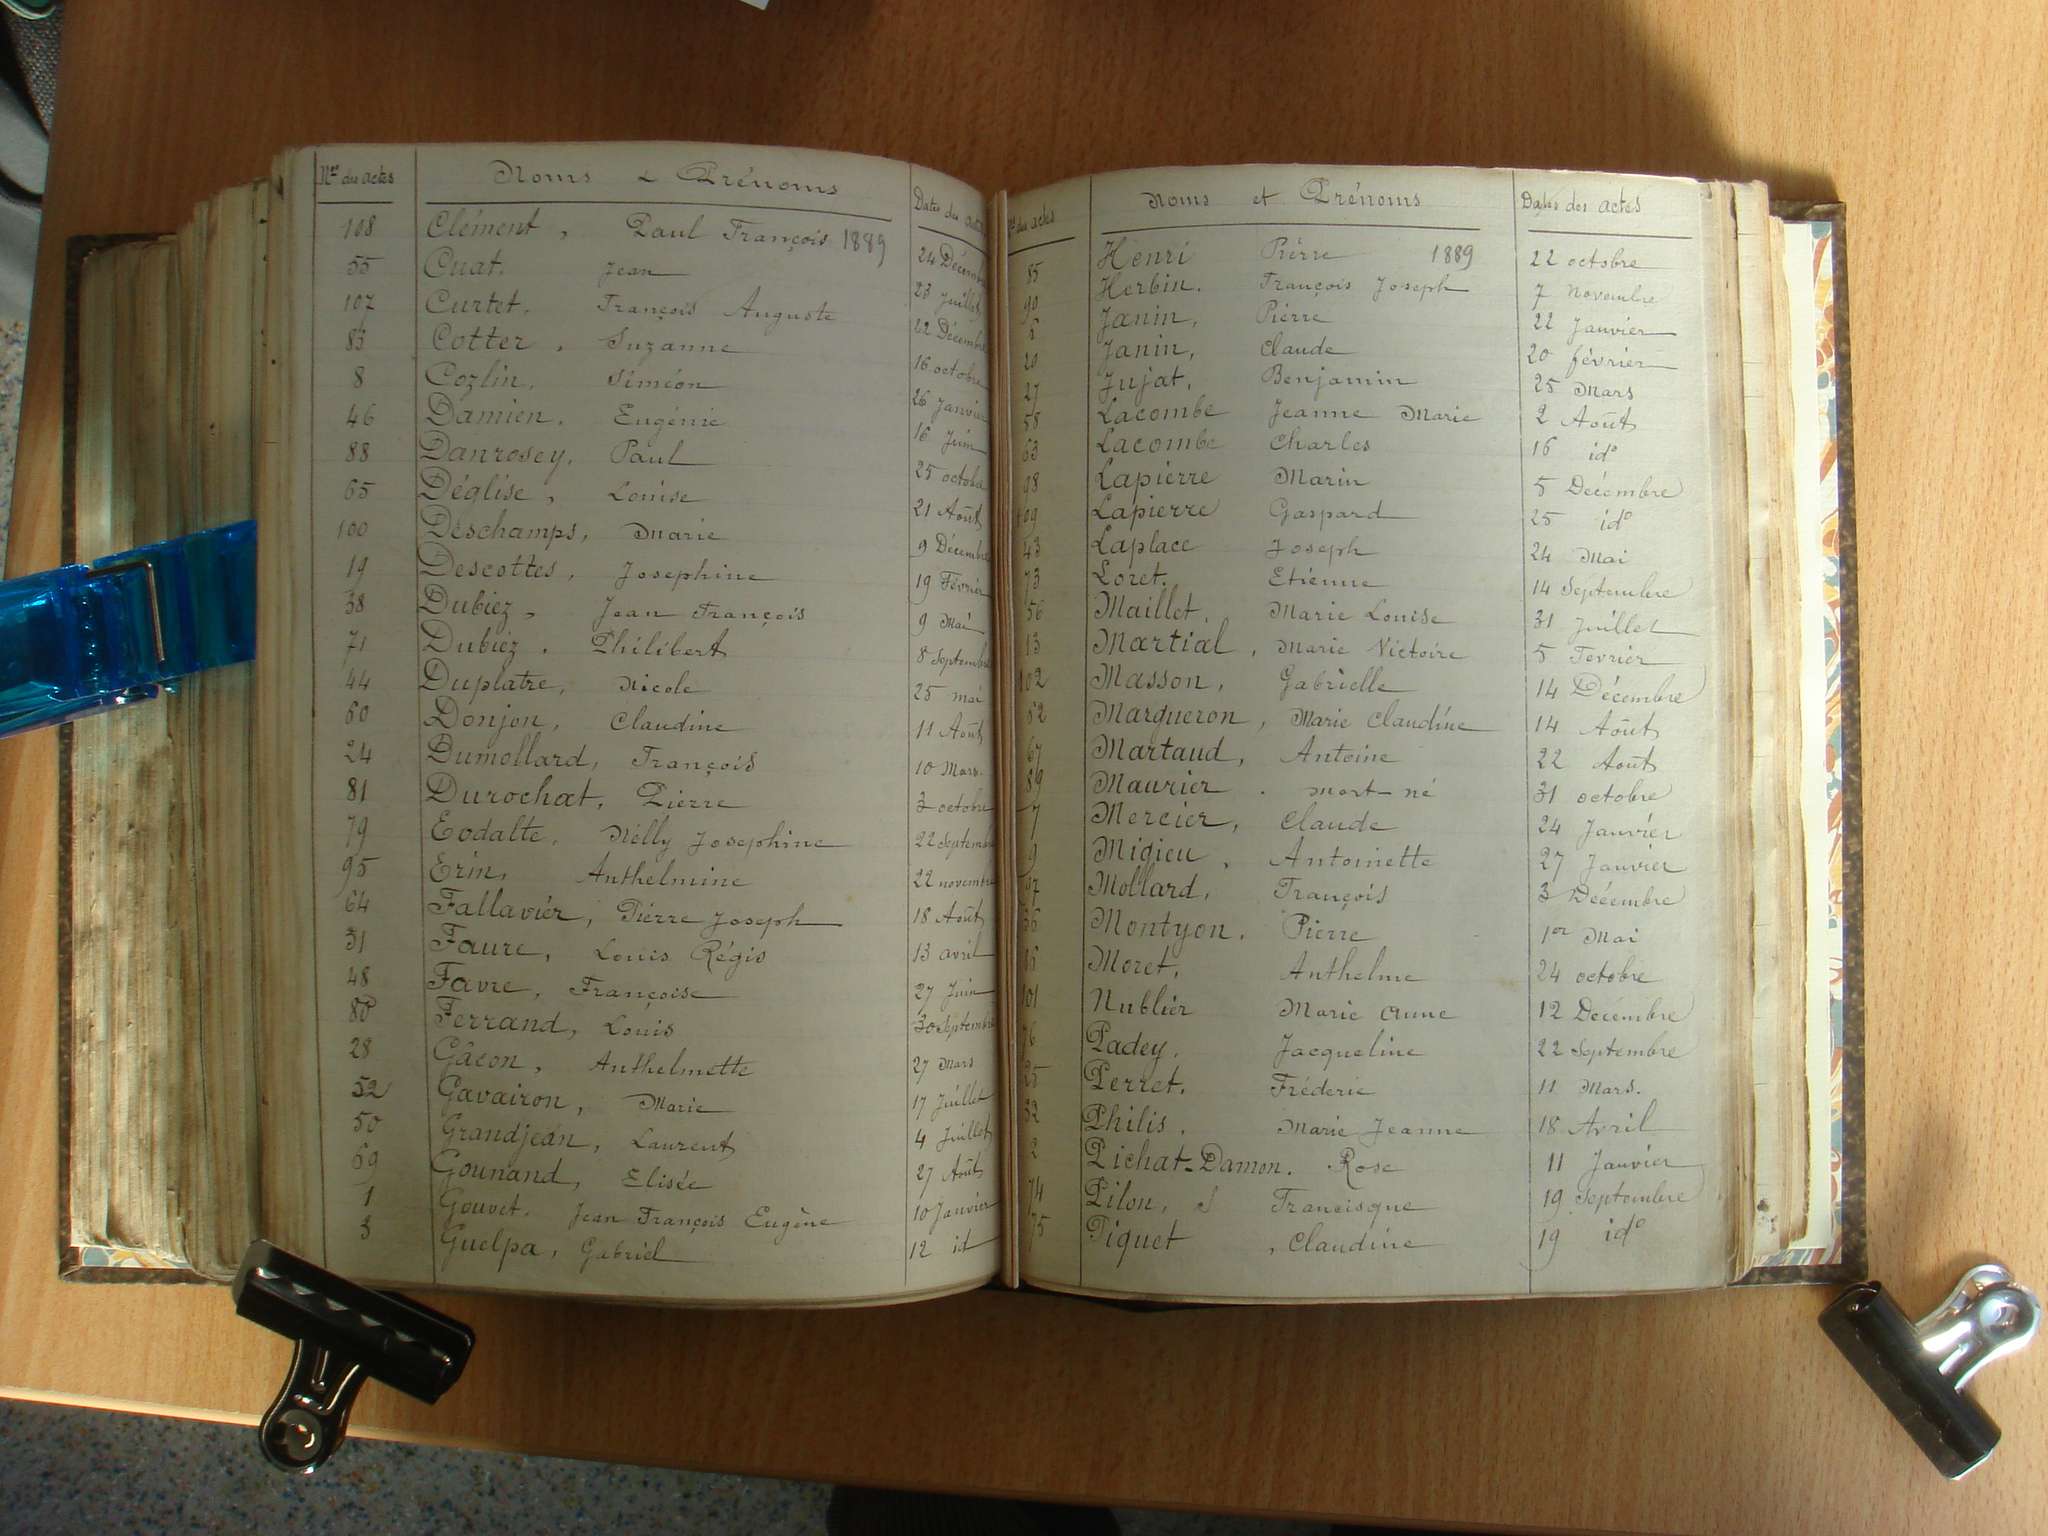 Nos des actes Noms & Prénoms Dates des actes
108 Clément, Paul François 1889 24 Décembre
55 Cuat. Jean 23 Juillet
107 Curtet. François Auguste 22 Décembre
83 Cotter, Suzanne 16 octobre
8 Cozlin, Siméon 26 Janvier
46 Damien. Eugénie 16 Juin
88 Danrosey, Paul 25 octobre
65 Déglise, Louise 21 Août
100 Deschamps, Marie 9 Décembre
19 Descottes, Josephine 19 Février
38 Dubiez, Jean François 9 Mai
71 Dubiez. Philibert 8 Septembre
44 Duplatre, Nicole 25 mai
60 Donjon, Claudine 11 Août
24 Dumollard, François 10 Mars.
81 Durochat, Pierre 3 octobre
79 Eodalte, Nélly Josephine 22 Septembre
95 Erin, Anthelmine 22 novembre
64 Fallavier, Pierre Joseph 18 Août
31 Faure, Louis Régis 13 avril
48 Favre, Françoise 27 Juin
80 Ferrand, Louis 30 Septembre
28 Gâcon, Anthelmette 27 Mars
52 Gavairon, Marie 17 Juillet
50 Grandjean, Laurent 4 Juillet
69 Gounand, Elisée 27 Août
1 Gouvet. Jean François Eugène 10 Janvier
3 Guelpa, Gabriel 12 id
des actes Noms et Prénoms Dates des actes
85 Henri Pierre 1889 22 octobre
90 Herbin. François Joseph 7 Novembre
6 Janin, Pierre 22 Janvier
20 Janin, Claude 20 février
27 Jujat, Benjamin 25 Mars
58 Lacombe Jeanne Marie 2 Août
63 Lacombe Charles 16 id°
98 Lapierre Marin 5 Décembre
109 Lapierre Gaspard 25 id°
43 Laplace Joseph 24 Mai
73 Loret. Etienne 14 Septembre
56 Maillet, Marie Louise 31 Juillet
13 Martial, Marie Victoire 5 Fevrier
102 Masson, Gabrielle 14 Décembre
62 Margueron, Marie Claudine 14 Août
67 Martaud, Antoine 22 Août
89 Maurier. mort né 31 octobre
7 Mercier, Claude 24 Janvier
9 Migieu, Antoinette 27 Janvier
97 Mollard, François 3 Décembre
36 Montyon. Pierre 1er Mai
Moret, Anthelme 24 octobre
101 Nublier Marie Anne 12 Décembre
76 Padey, Jacqueline 22 Septembre
25 Perret, Fréderic 11 Mars.
32 Philis, Marie Jeanne 18 Avril
2 Pichat-Damon. Rose 11 Janvier
74 Pilon, Francisque 19 Septembre
75 Piquet, Claudine 19 id°